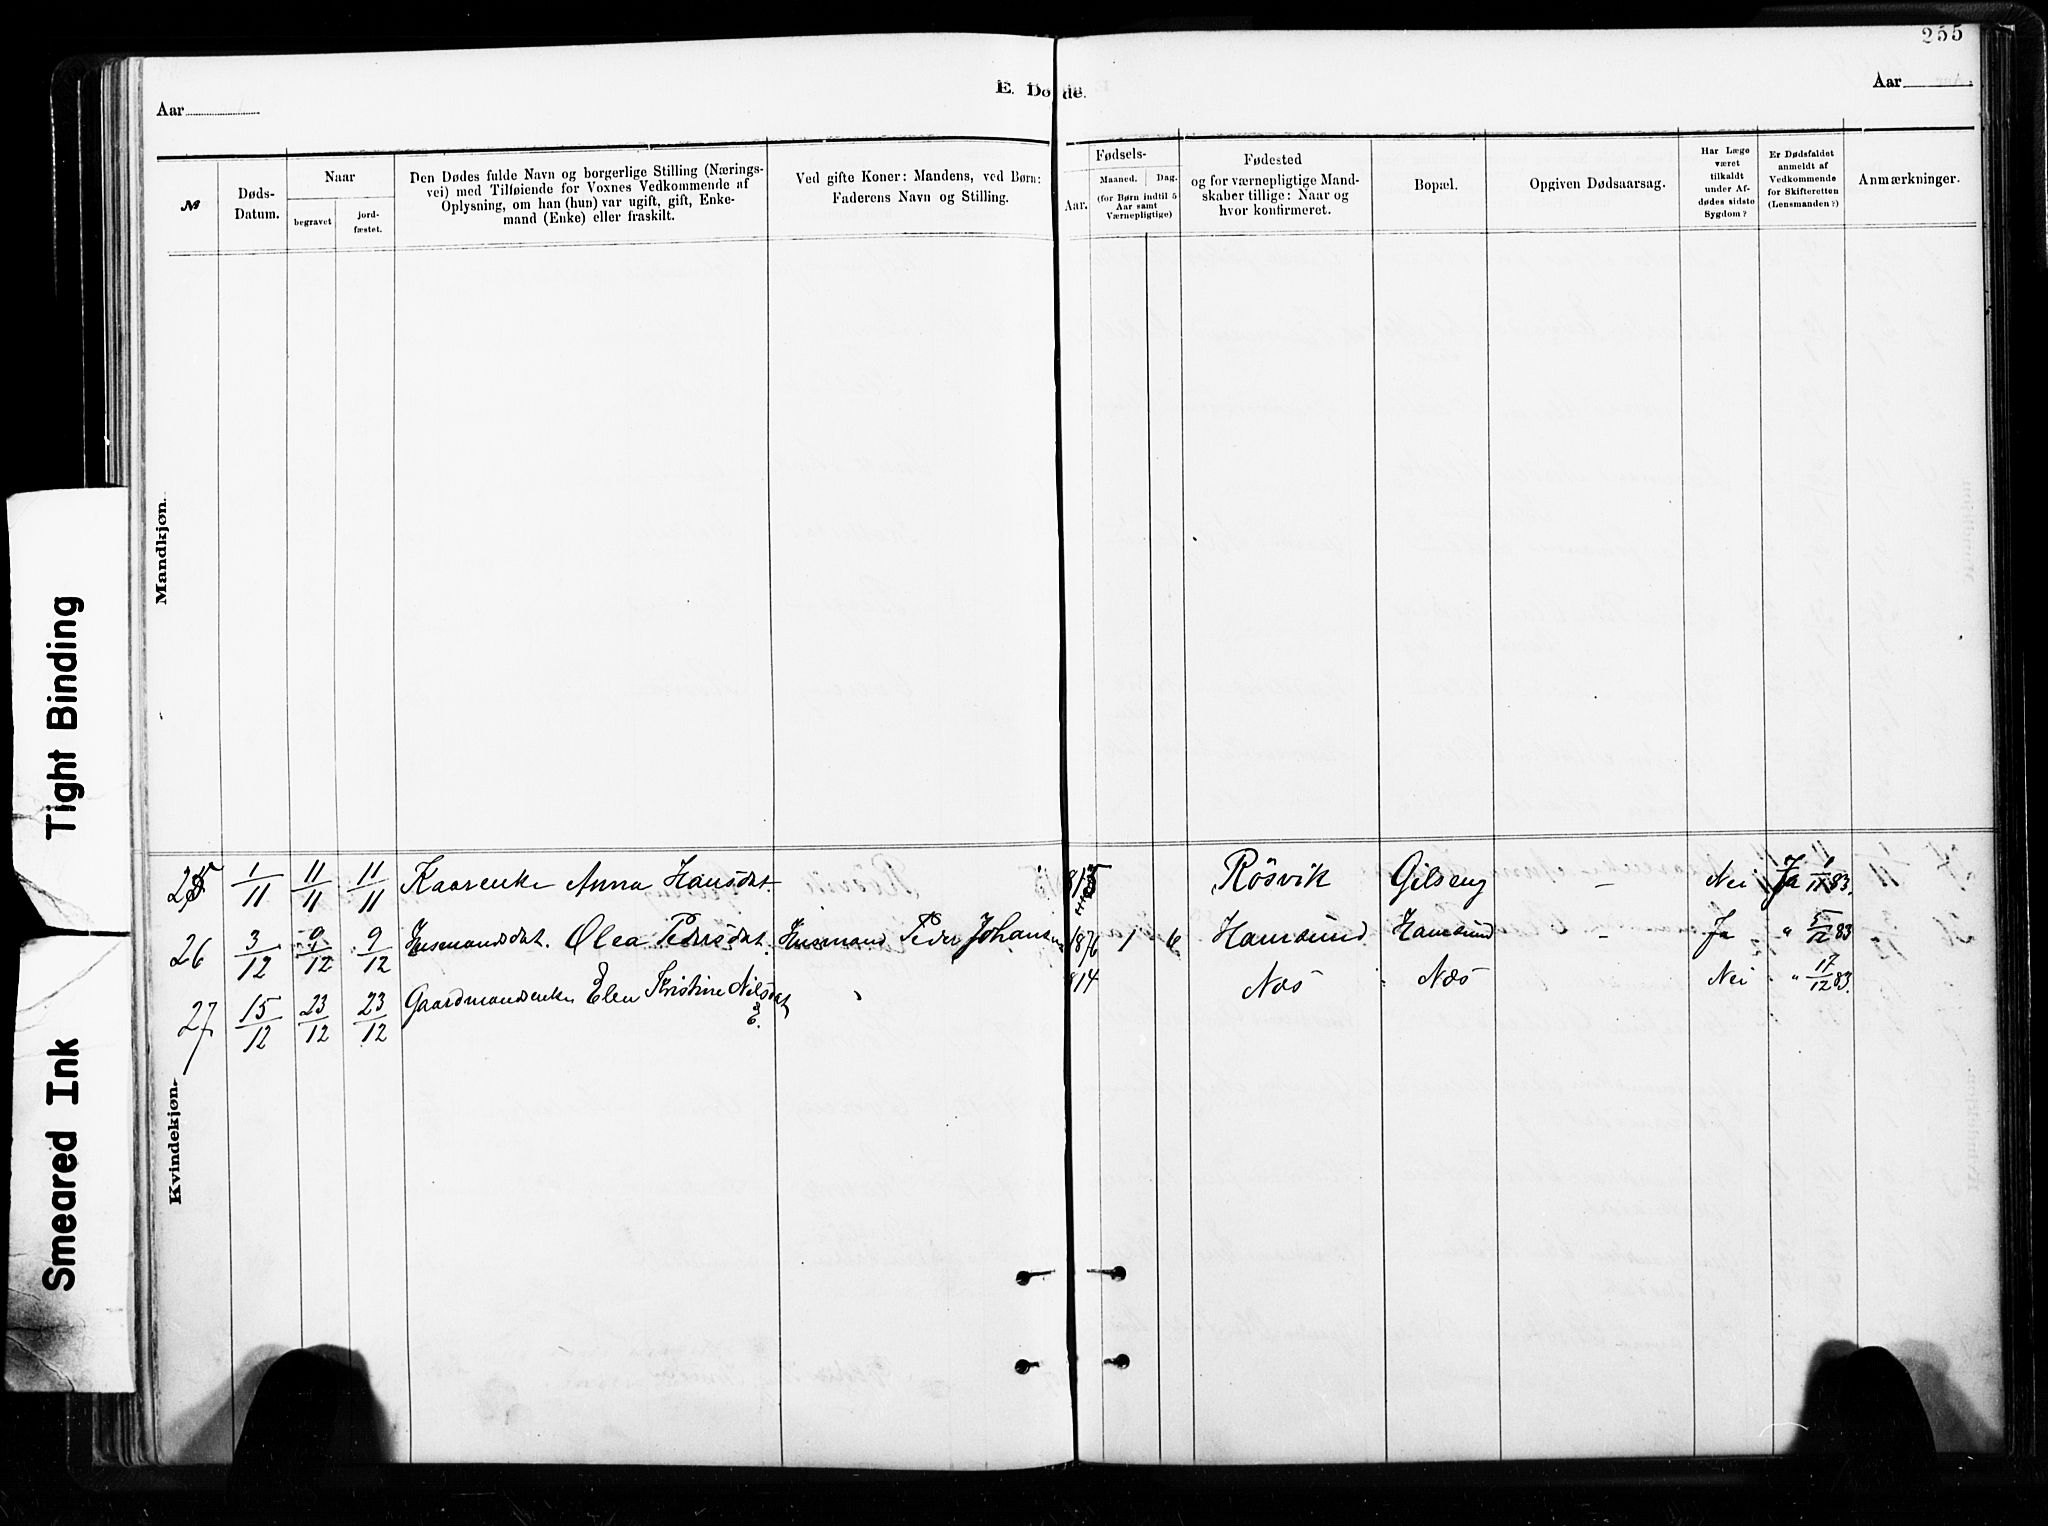 255
Aar
E. Døde.
Aar
№
Døds-
Datum.
Naar
begravet
jord-
fæstet.
Den Dødes fulde Navn og borgerlige Stilling (Nærings-
vei) med Tilføiende for Voxnes Vedkommende af
Oplysning, om han (hun) var ugift, gift, Enke-
mand (Enke) eller fraskilt.
Ved gifte Koner: Mandens, ved Børn:
Faderens Navn og Stilling.
Fødsels-
Aar.
Maaned.
Dag.
(for Børn indtil 5
Aar samt
Værnepligtige)
Fødested
og for værnepligtige Mand-
skaber tillige: Naar og
hvor konfirmeret.
Bopæl.
Opgiven Dødsaarsag.
Har Læge
været
tilkaldt
under Af-
dødes sidste
Sygdom?
Er Dødsfaldet
anmeldt af
Vedkommende
for Skifteretten
(Lensmanden?)
Anmærkninger.
Mandkjøn.
25 1/11 11/11 11/11 Kaarenke Anna Hansdat. Rösvik Gilseng – Nei Ja 1/11 83.
26 3/12 9/12 9/12 Husmandsdat. Olea Pedersdat. Husmand Peder Johansen 1876 1 6 Hamsund Hamsund – Ja " 5/12 83
27 15/12 23/12 23/12 Gaardmandsenke Elen Kristine Nilsdat 814 Næs Næs Nei " 17/12 83.
Kvindekjøn.
Tight Binding
Smeared Ink